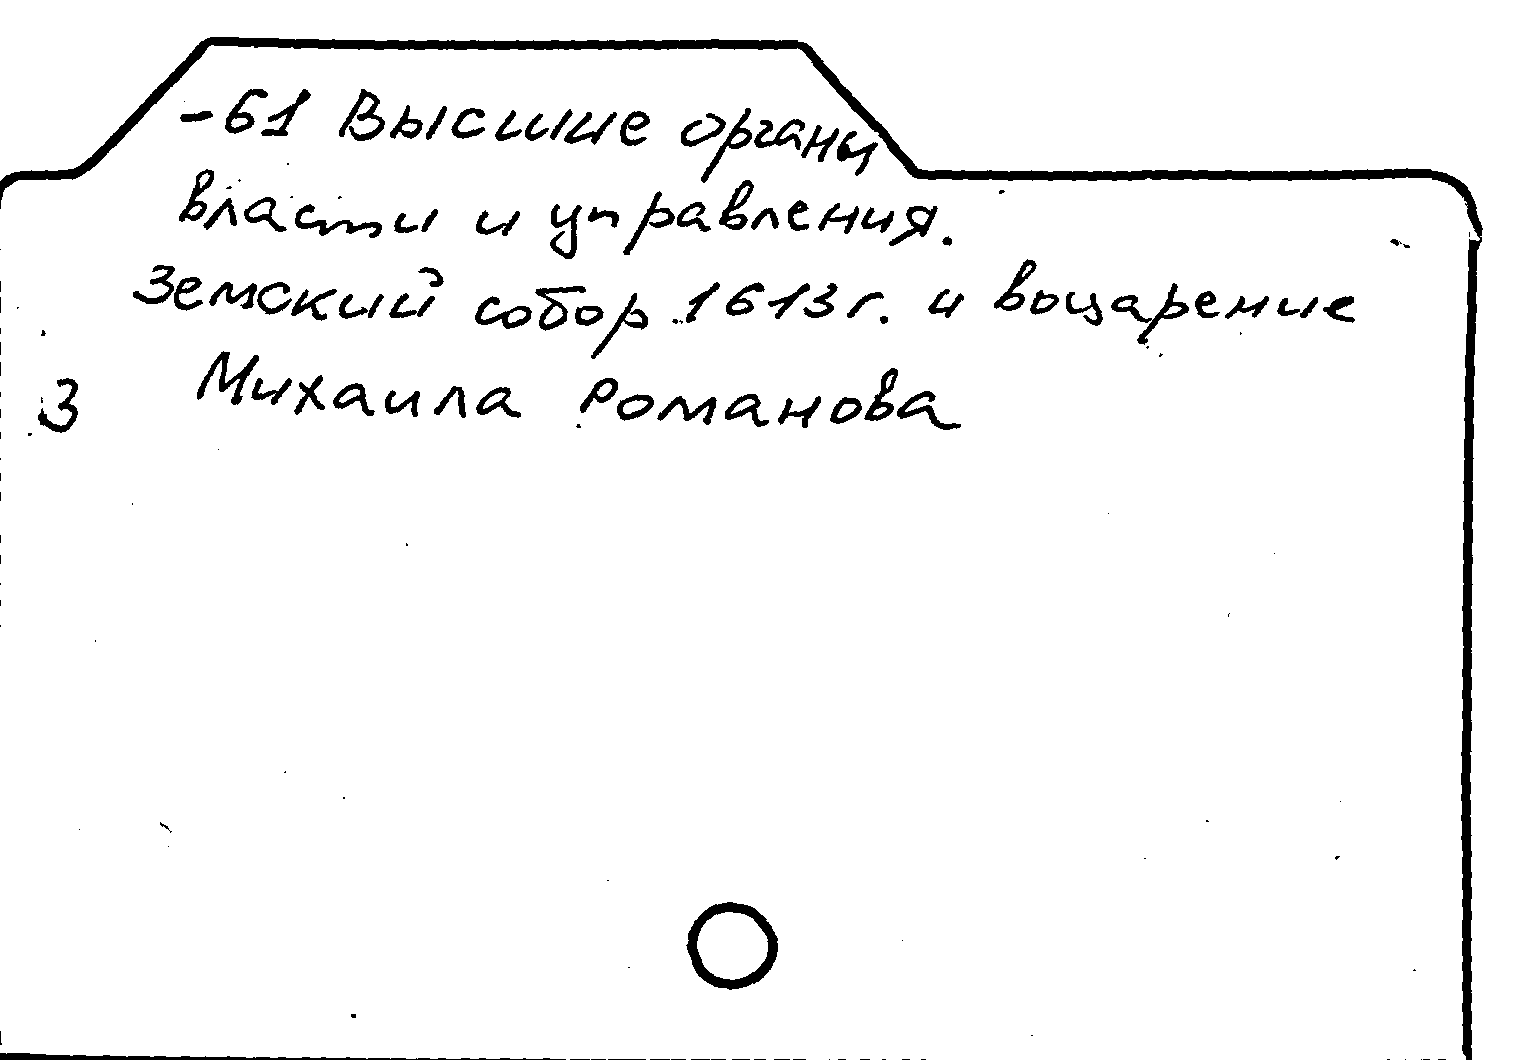 -61 Высшие органы
власти и управления.
Земский собор 1613г. и воцарение
3 Михаила Романова